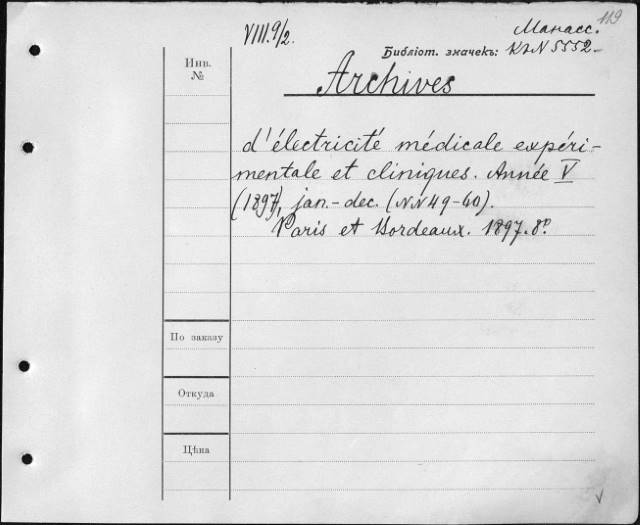 119
VIII.9/2.
Манасс.
Библіот. значекъ: КлN 5552-
Инв.
№
Archives
d'électricité médicale expéri-
mentale et cliniques. Année V
(1897), jan.-dec. (NN 49-60).
Paris et Bordeaux. 1897. 8º
По заказу
Откуда
Цѣна